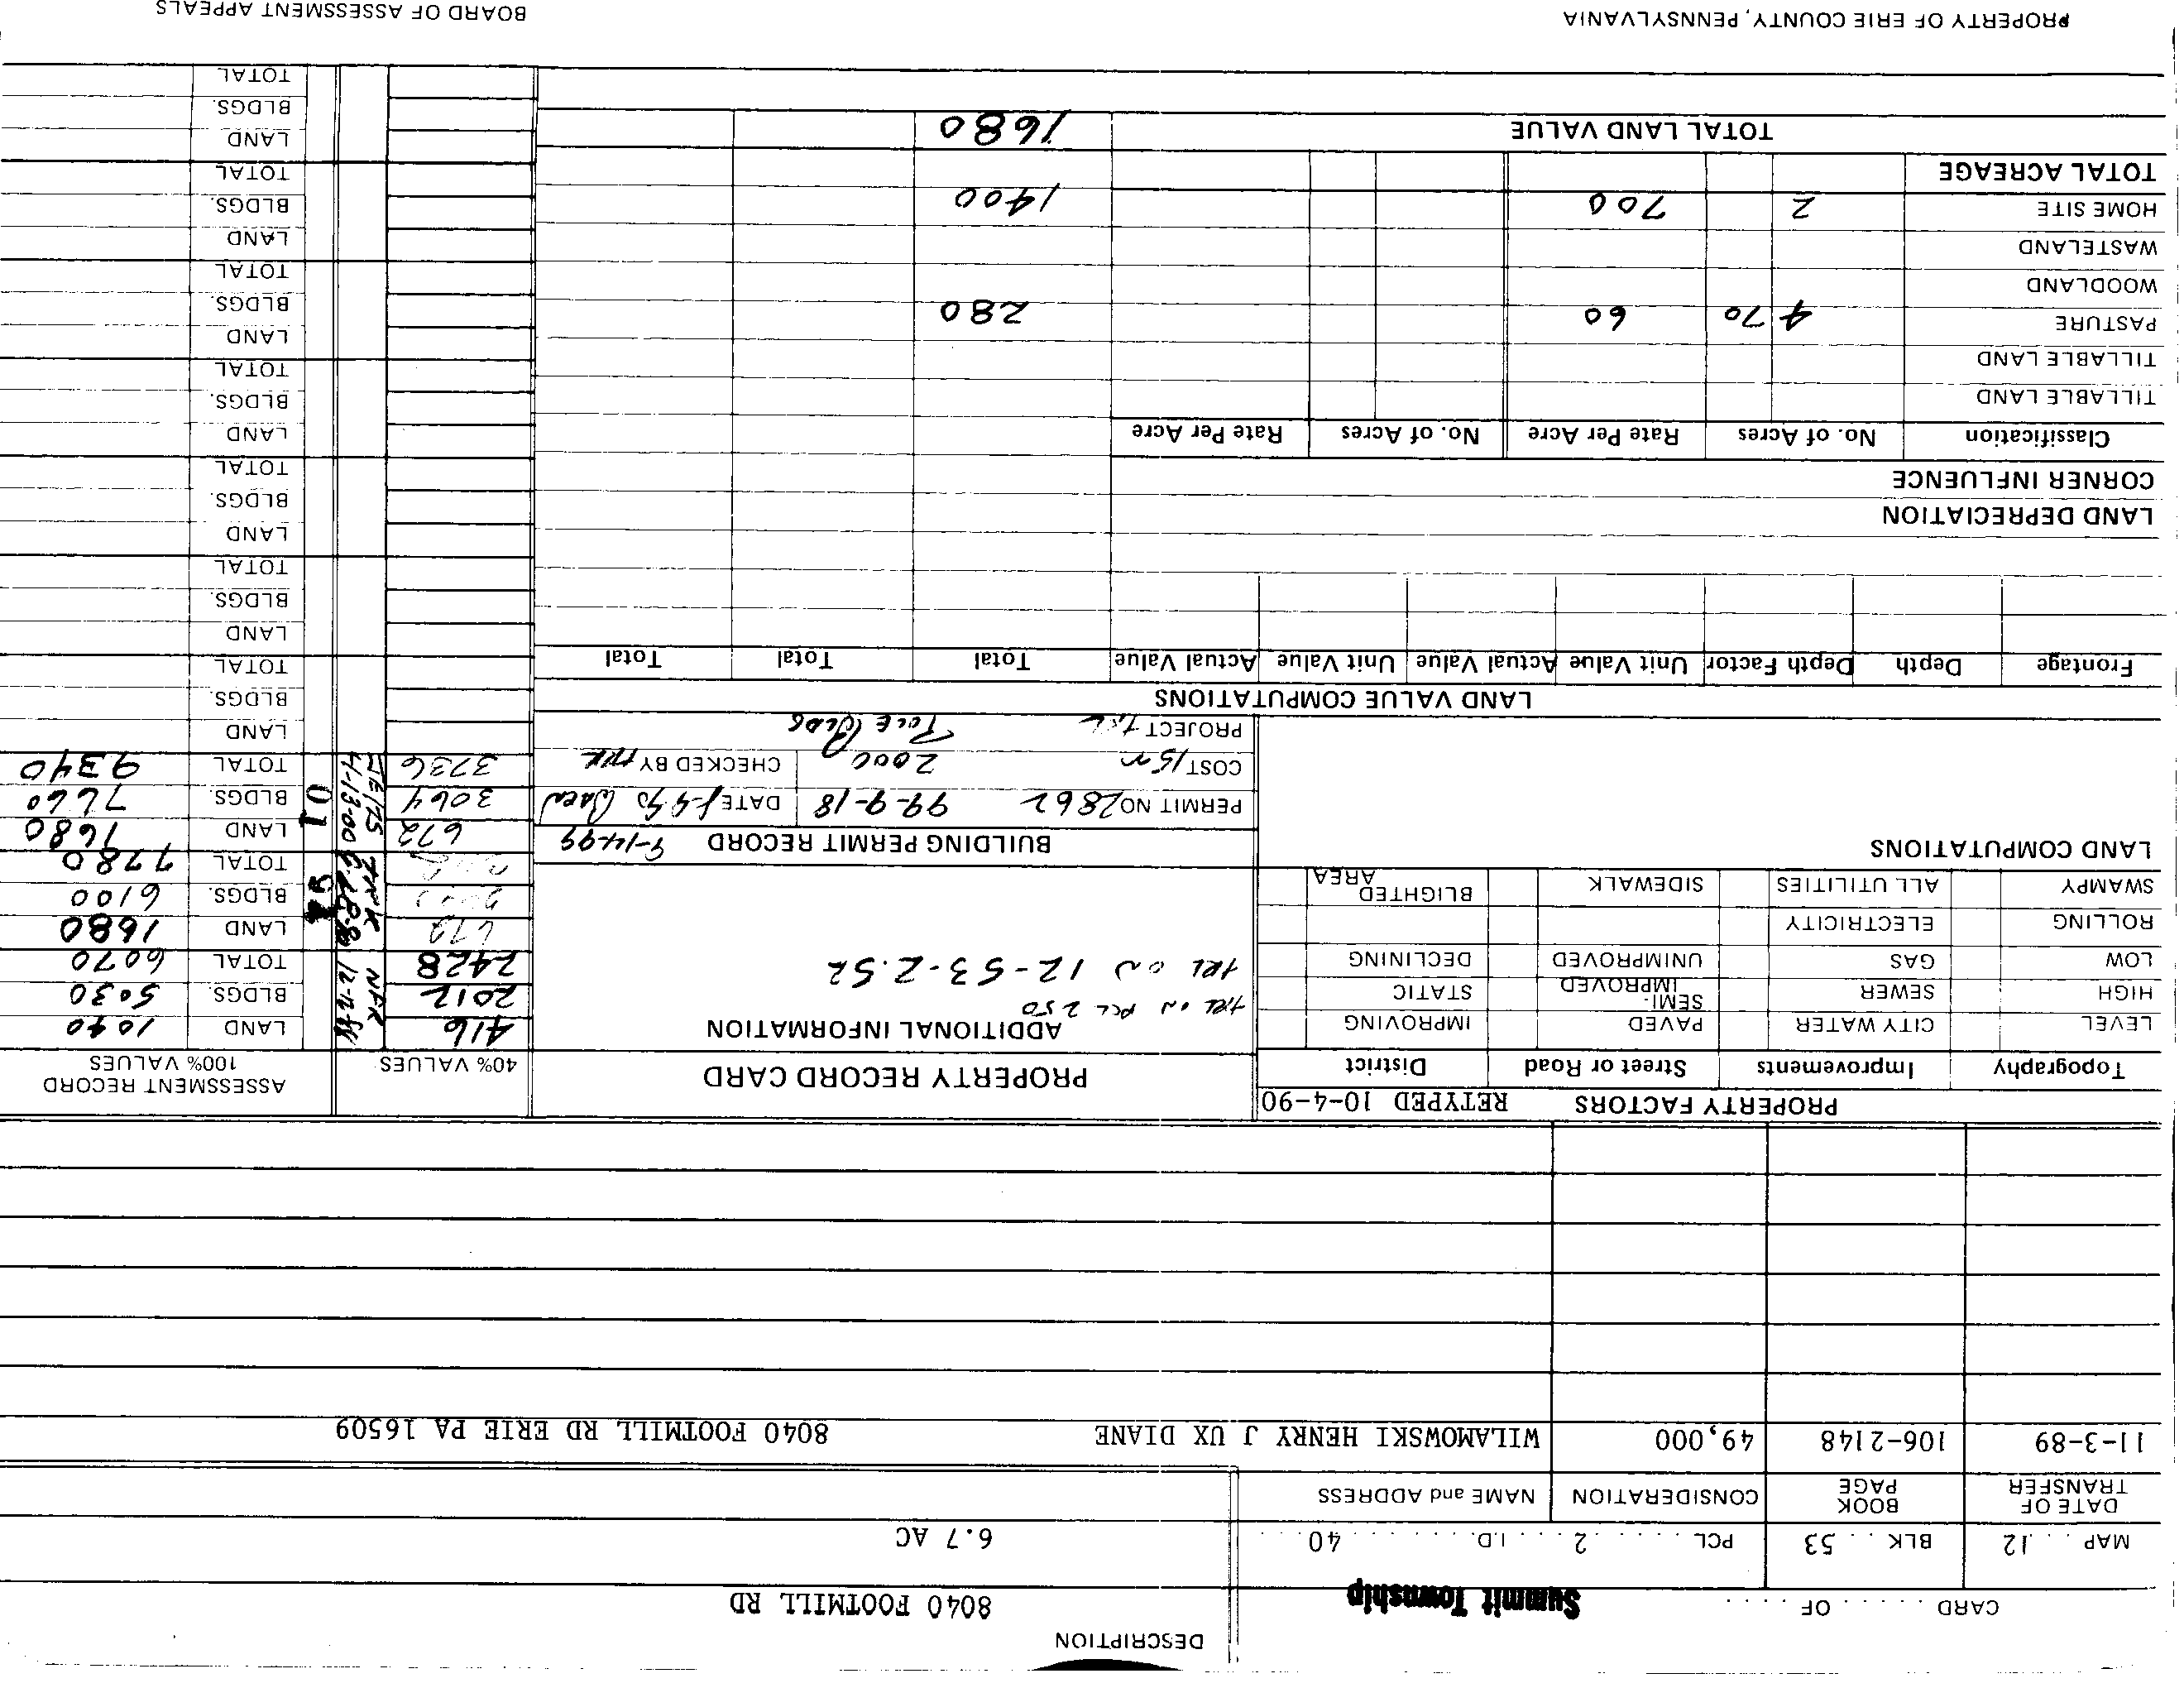 DESCRIPTION
CARD . . . . . OF . . . . . Summit Township 8040 FOOTMILL RD
MAP . . . 12 BLK . . . 53 PCL . . . . . . 2 . . . I.D. . . . . . . . 40 . . . . 6.7 AC
DATE OF TRANSFER BOOK PAGE CONSIDERATION NAME and ADDRESS
11-3-89 106-2148 49,000 WILAMOWSKI HENRY J UX DIANE 8040 FOOTMILL RD ERIE PA 16509
PROPERTY FACTORS RETYPED 10-4-90
Topography Improvements Street or Road District
LEVEL CITY WATER PAVED IMPROVING
HIGH SEWER SEMI-IMPROVED STATIC
LOW GAS UNIMPROVED DECLINING
ROLLING ELECTRICITY
SWAMPY ALL UTILITIES SIDEWALK BLIGHTED AREA
LAND COMPUTATIONS
PROPERTY RECORD CARD
ADDITIONAL INFORMATION
ON PCL 250
ON 12-53-2.52
BUILDING PERMIT RECORD 9-14-99
PERMIT NO 2862 99-9-18 DATE
COST 15 2000 CHECKED BY
PROJECT Pole Bldg
40% VALUES ASSESSMENT RECORD 100% VALUES
416 LAND 1040
2012 BLDGS. 5030
2428 TOTAL 6070
672 LAND 1680
BLDGS. 6100
TOTAL 7780
672 LAND 1680
3064 01 BLDGS. 7660
3736 TOTAL 9340
LAND
BLDGS.
TOTAL
LAND
BLDGS.
TOTAL
LAND
BLDGS.
TOTAL
LAND
BLDGS.
TOTAL
LAND
BLDGS.
TOTAL
LAND
BLDGS.
TOTAL
LAND
BLDGS.
TOTAL
LAND VALUE COMPUTATIONS
Frontage Depth Depth Factor Unit Value Actual Value Unit Value Actual Value Total Total Total
LAND DEPRECIATION
CORNER INFLUENCE
Classification No. of Acres Rate Per Acre No. of Acres Rate Per Acre
TILLABLE LAND
TILLABLE LAND
PASTURE 4 70 60 280
WOODLAND
WASTELAND
HOME SITE 2 700 1400
TOTAL ACREAGE
TOTAL LAND VALUE 1680
PROPERTY OF ERIE COUNTY, PENNSYLVANIA BOARD OF ASSESSMENT APPEALS